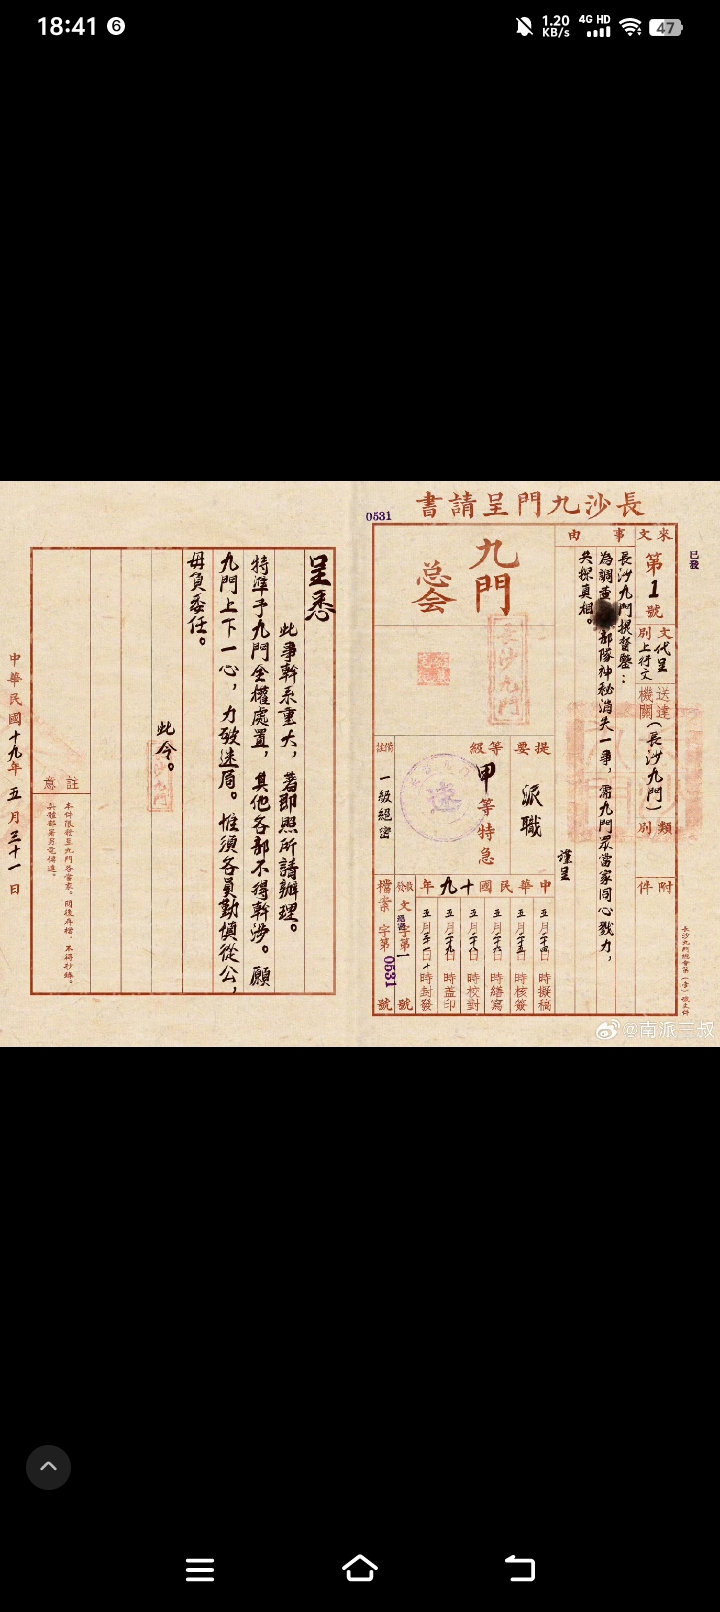 18:41
6
1.20 KB/s
4G HD
47
0531
長沙九門呈請書
已發
來文
第1號
文別
代呈
上行文
送達機關
（長沙九門）
類別
附件
事由
長沙九門提督鑒：
為調查部隊神秘消失一事，需九門眾當家同心戮力，
共探真相。
謹呈
九門
总会
長沙九門
提要
派職
等級
甲等特急
達
一級絕密
中華民國十九年
五月二十四日 時擬稿
五月二十五日 時核簽
五月二十六日 時繕寫
五月二十八日 時校對
五月二十九日 時蓋印
五月三十一日十時封發
文
字第一號
檔案
字第0531號
呈悉
此事幹系重大，著即照所請辦理。
特準予九門全權處置，其他各部不得幹涉。願
九門上下一心，力破迷局。惟須各員勤慎從公，
毋負委任。
此令。
長沙九門
註意
中華民國十九年五月三十一日
@南派三叔